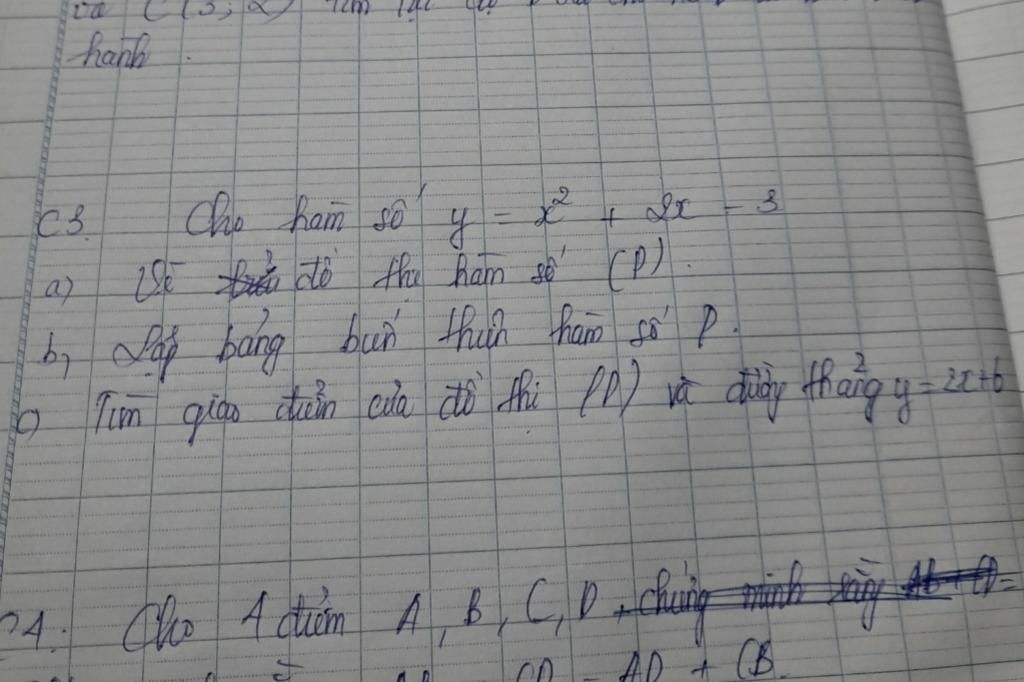 và C(3; 2) Tìm
hành.
C3. Cho hàm số y = x² + 2x - 3
a) Vẽ đồ thị hàm số (P).
b, Lập bảng biến thiên hàm số P.
c) Tìm giao điểm của đồ thị (P) và đường thẳng y = 2x+6
C4. Cho 4 điểm A, B, C, D, chứng minh rằng AB + CD =
CD = AD + CB.